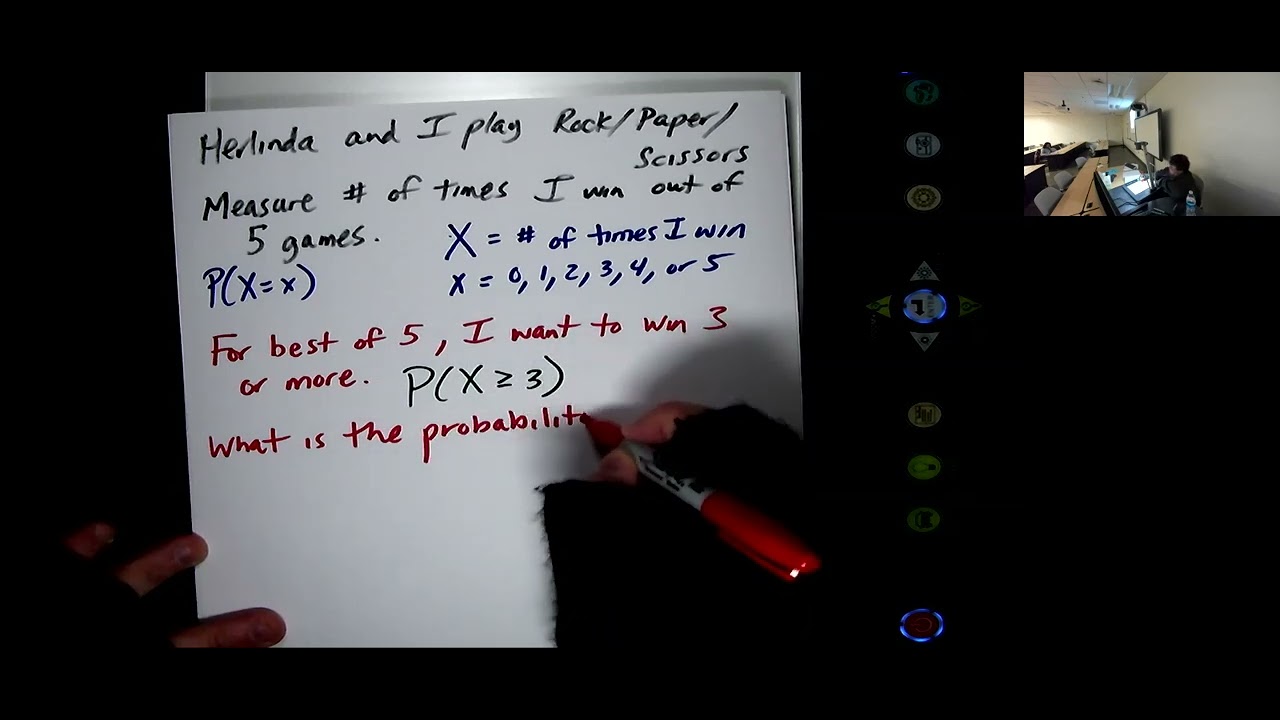 Herlinda and I play Rock/Paper/
Scissors
Measure # of times I win out of
5 games.
X = # of times I win
P(X=x)
x = 0, 1, 2, 3, 4, or 5
For best of 5, I want to win 3
or more. P(X ≥ 3)
What is the probabilit